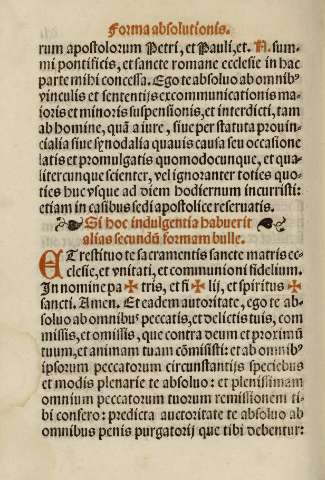 Forma absolutionis.
rum apostolorum Petri, et Pauli, et. N. sum-
mi pontificis, et sancte romane ecclesie in hac
parte mihi concessa. Ego te absoluo ab omnibꝰ
vinculis et sententijs excommunicationis ma-
ioris et minoris suspensionis, et interdicti, tam
ab homine, quā a iure, siue per statuta prouin-
cialia siue synodalia quauis causa seu occasione
latis et promulgatis quomodocunque, et qua-
litercunque scienter, vel ignoranter toties quo-
ties huc vsque ad diem hodiernum incurristi:
etiam in casibus sedi apostolice reseruatis.
❧ Si hoc indulgentia habuerit ❧
alias secundū formam bulle.
ET restituo te sacramentis sancte matris ec-
clesie, et vnitati, et communioni fidelium.
In nomine pa ✠ tris, et fi ✠ lij, et spiritus ✠
sancti. Amen. Et eadem autoritate, ego te ab-
soluo ab omnibuˢ peccatis, et delictis tuis, com
missis, et omissis, que contra deum et proximū
tuum, et animam tuam cōmisisti: et ab omnibꝰ
ipsorum peccatorum circunstantijs speciebus
et modis plenarie te absoluo: et plenissimam
omnium peccatorum tuorum remissionem ti-
bi confero: predicta auctoritate te absoluo ab
omnibus penis purgatorij que tibi debentur: